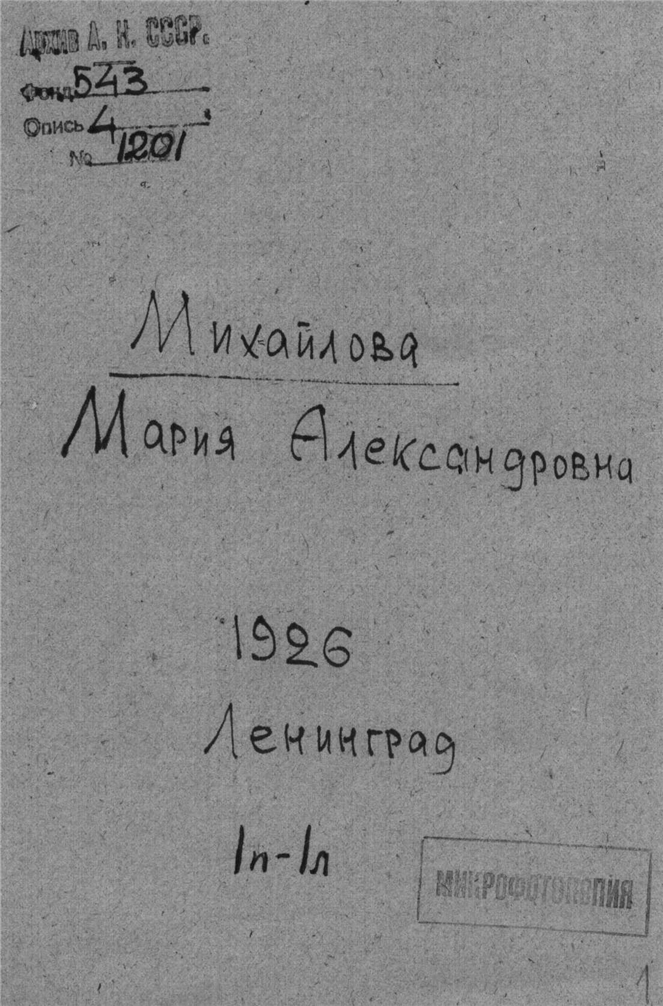 Архив А. Н. СССР.
Фонд 543
Опись 4
№ 1201
Михайлова
Мария Александровна
1926
Ленинград
1п-1л
МИКРОФОТОКОПИЯ
1